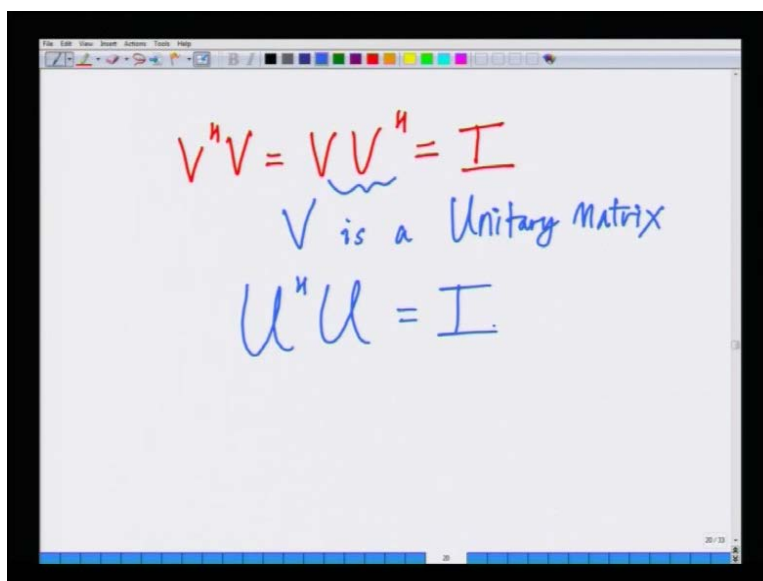 File Edit View Insert Actions Tools Help
B I
V^H V = V V^H = I
V is a Unitary Matrix
U^H U = I.
20/33
20